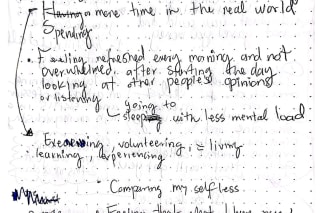 Having a more time in the real world
Spending
• Feeling refreshed every morning and not
overwhelmed after starting the day
looking at other peoples opinions
or listening
going to
sleep with less mental load
Exercising, volunteering, = living
learning, experiencing
• Comparing my self less